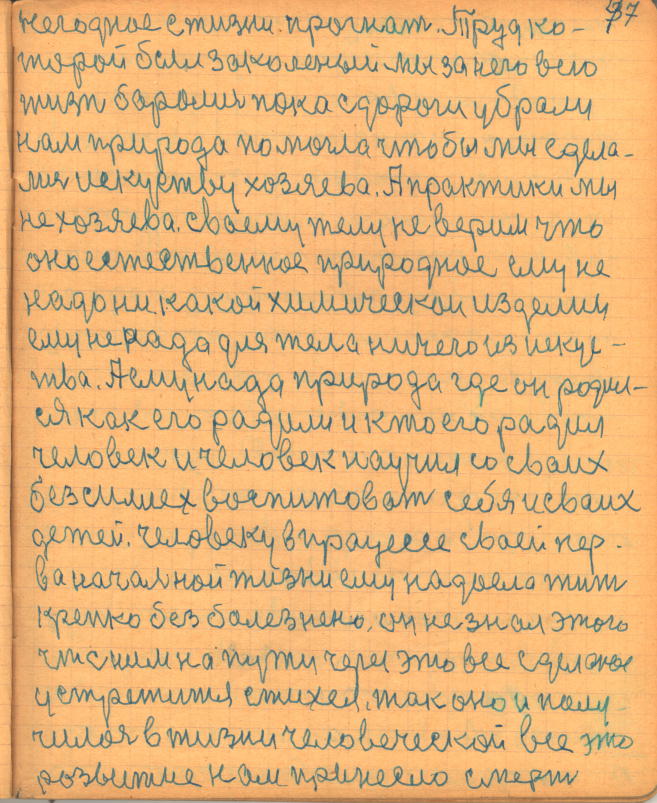 37
негодное с жизни. прогнат. Труд ко-
торой был заколеный мы за него всю
жизн баролис пока с дороги убрали
нам природа помогла чтобы мы сдела-
лис искуству хозяева. А практики мы
не хозяева. своему телу не верим что
оно естественное природное ему не
надо ни какой химической изделии
ему не нада для тела ничего из искус-
тва. А ему нада природа где он родил-
ся как его радили и кто его радил
человек и человек научил со сваих
без силлех воспитоват себя и сваих
детей. человеку в працессе своей пер-
ваначалной жизни ему надоела жит
крепко без балезнено, он не знал этого
что с ним на пути через это все сделаное
устретится стихея. так оно и полу
чилося в жизни человеческой все это
розвитие нам принесло смерт